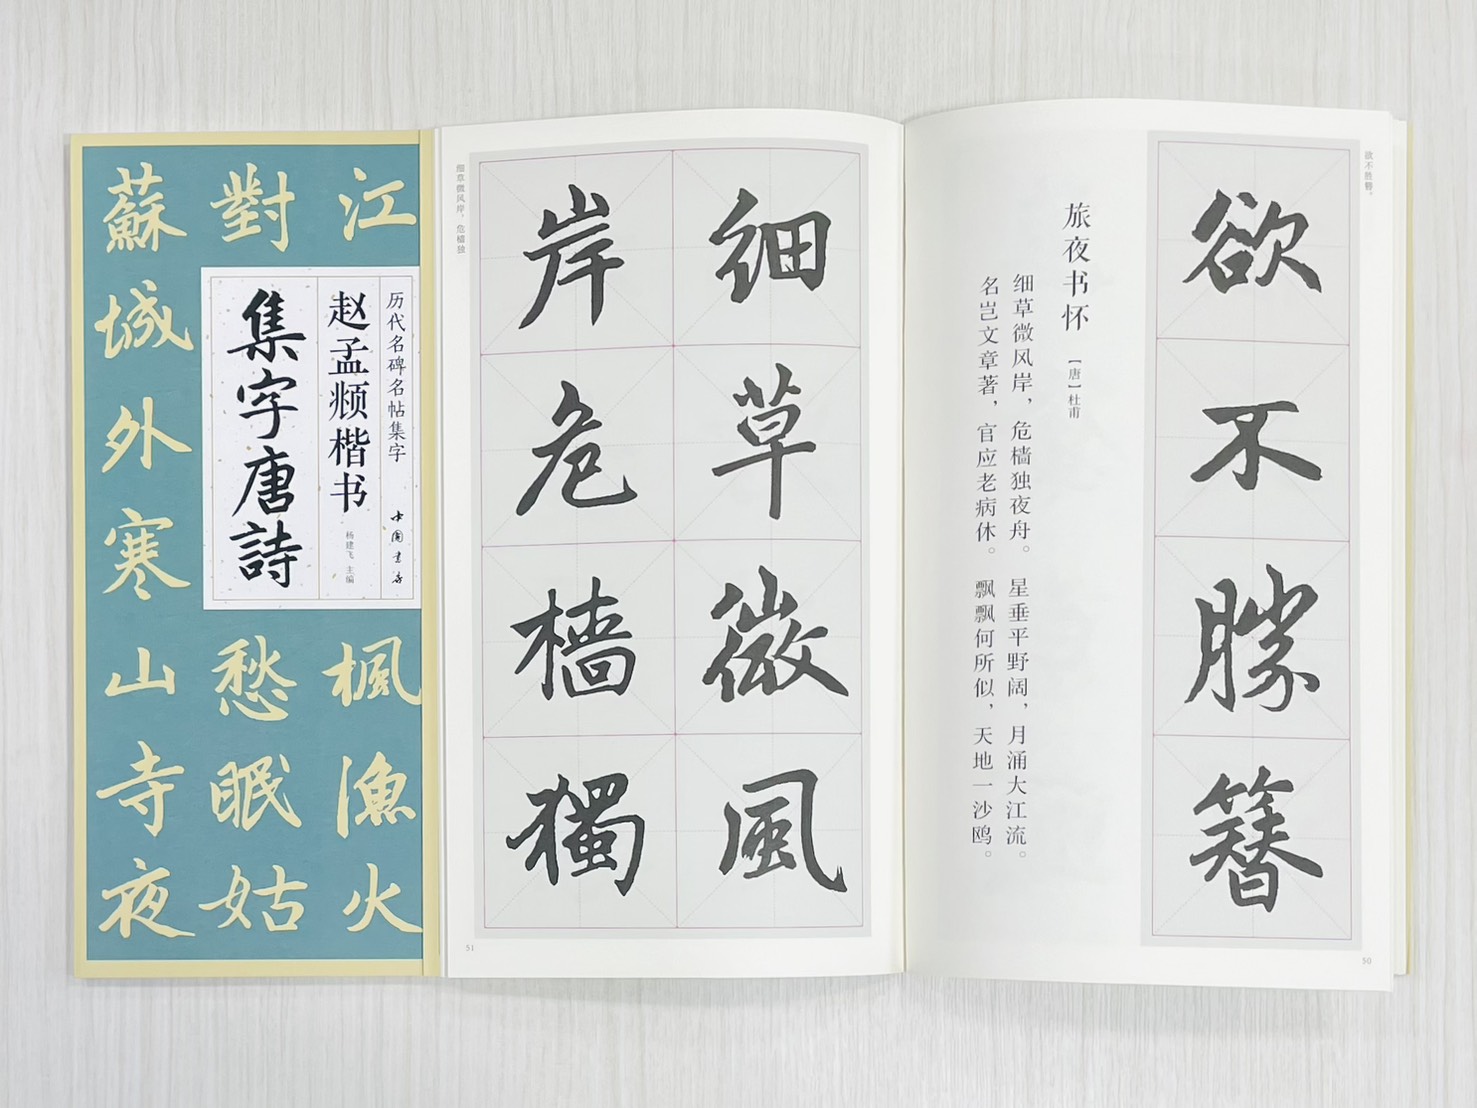 江
對
蘇
城
外
寒
山
寺
夜
楓
漁
火
愁
眠
姑
历代名碑名帖集字
中国书店
赵孟頫楷书
杨建飞 主编
集字唐詩
欲不胜簪。
欲不勝簪
旅夜书怀
[唐]杜甫
细草微风岸，危樯独夜舟。 星垂平野阔，月涌大江流。
名岂文章著，官应老病休。 飘飘何所似，天地一沙鸥。
50
细草微风
岸危檣獨
细草微风岸，危樯独
51